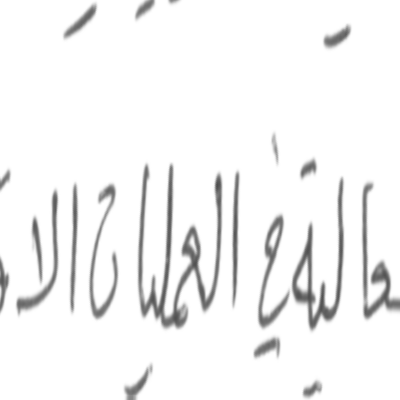 عالية في العمليات الا